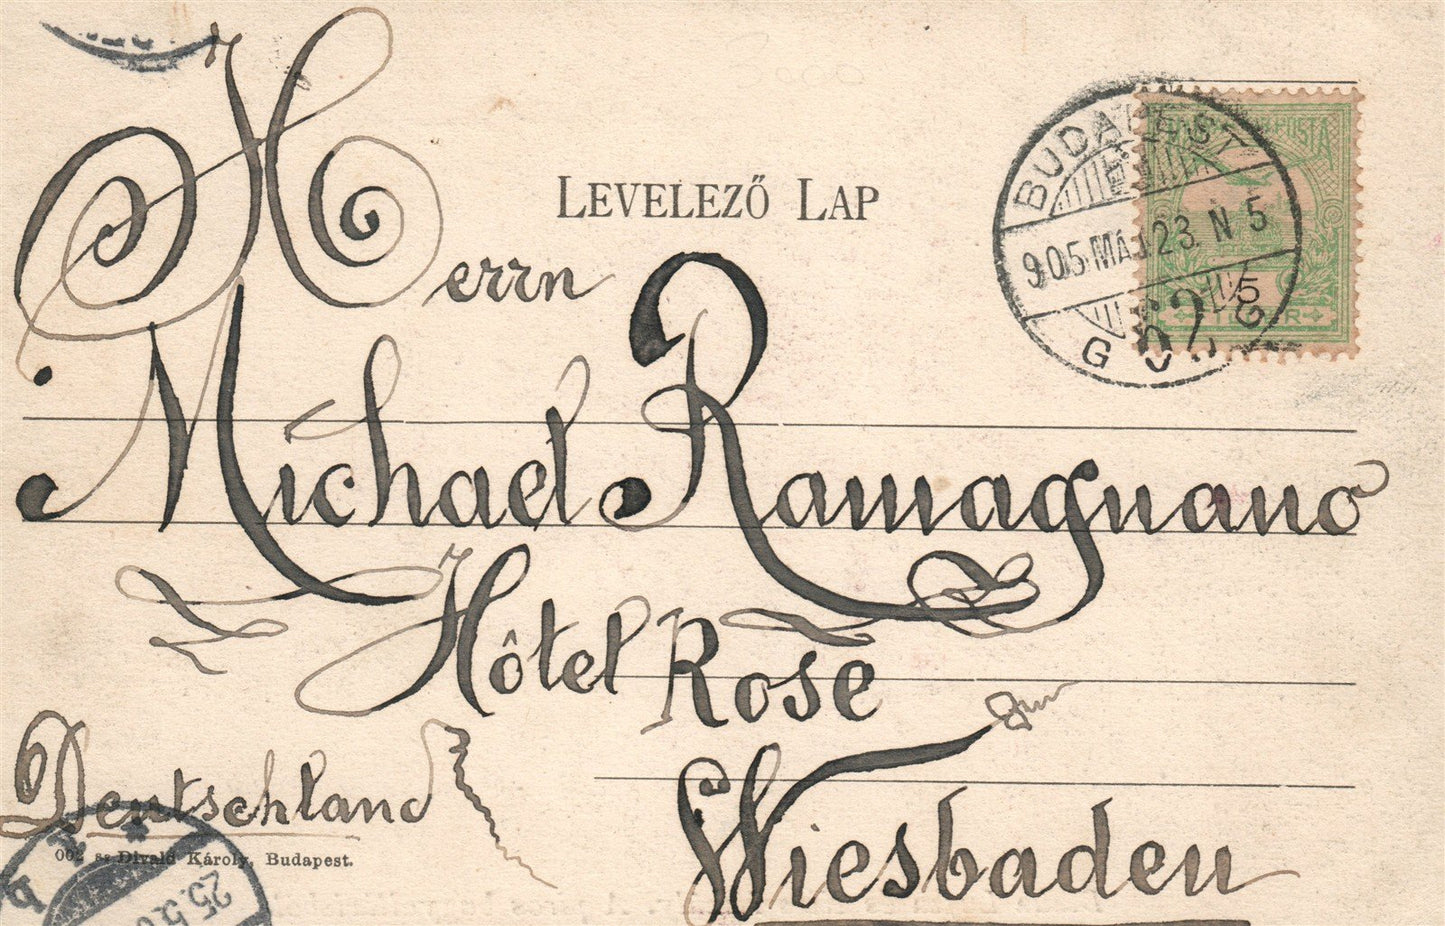 LEVELEZŐ LAP
BUDAPEST
905 MÁJ 23 N 5
62
5
Herrn
Michael Ramagnano
Hôtel Rose
Deutschland
Wiesbaden
002 sz Divald Károly, Budapest.
25.5.0